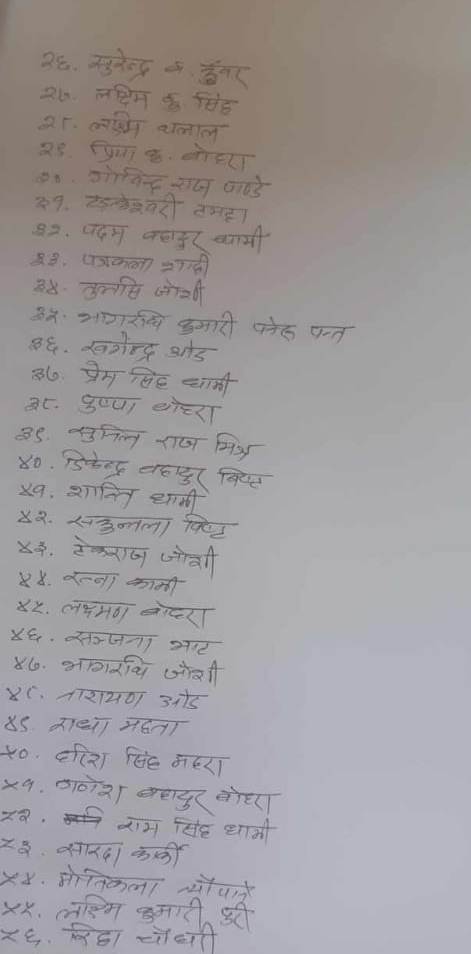 २६. सुरेन्द्र ब. कुँवर
२७. लक्ष्मि कु सिंह
२८. लक्ष्मि धलाल
२९. प्रिया कु. बोहरा
३०. गोविन्द्र राज पाण्डे
३१. टंकेश्वरी टमटा
३२. पदम बहादुर धामी
३३. पत्रकला शाही
३४. तुलसि जोशी
३५. भागरथि कुमारी पन्त
३६. खगेन्द्र ओड
३७. प्रेम सिंह धामी
३८. पुष्पा बोहरा
३९. सुमित्र राज मिश्र
४०. डिकेन्द्र बहादुर बिष्ट
४१. शान्ति धामी
४२. सकुन्तला बिष्ट
४३. टेकराज जोशी
४४. रत्ना कामी
४५. लक्ष्मण बोहरा
४६. सञ्जना भाट
४७. भागरथि जोशी
४८. नारायण ओड
४९. राधा महता
५०. हरिश सिंह महरा
५१. गणेश बहादुर बोहरा
५२. राम सिंह धामी
५३. सारदा कार्की
५४. मोतिकला न्यौपाने
५५. लक्ष्मि कुमारी पुरी
५६. चौधरी